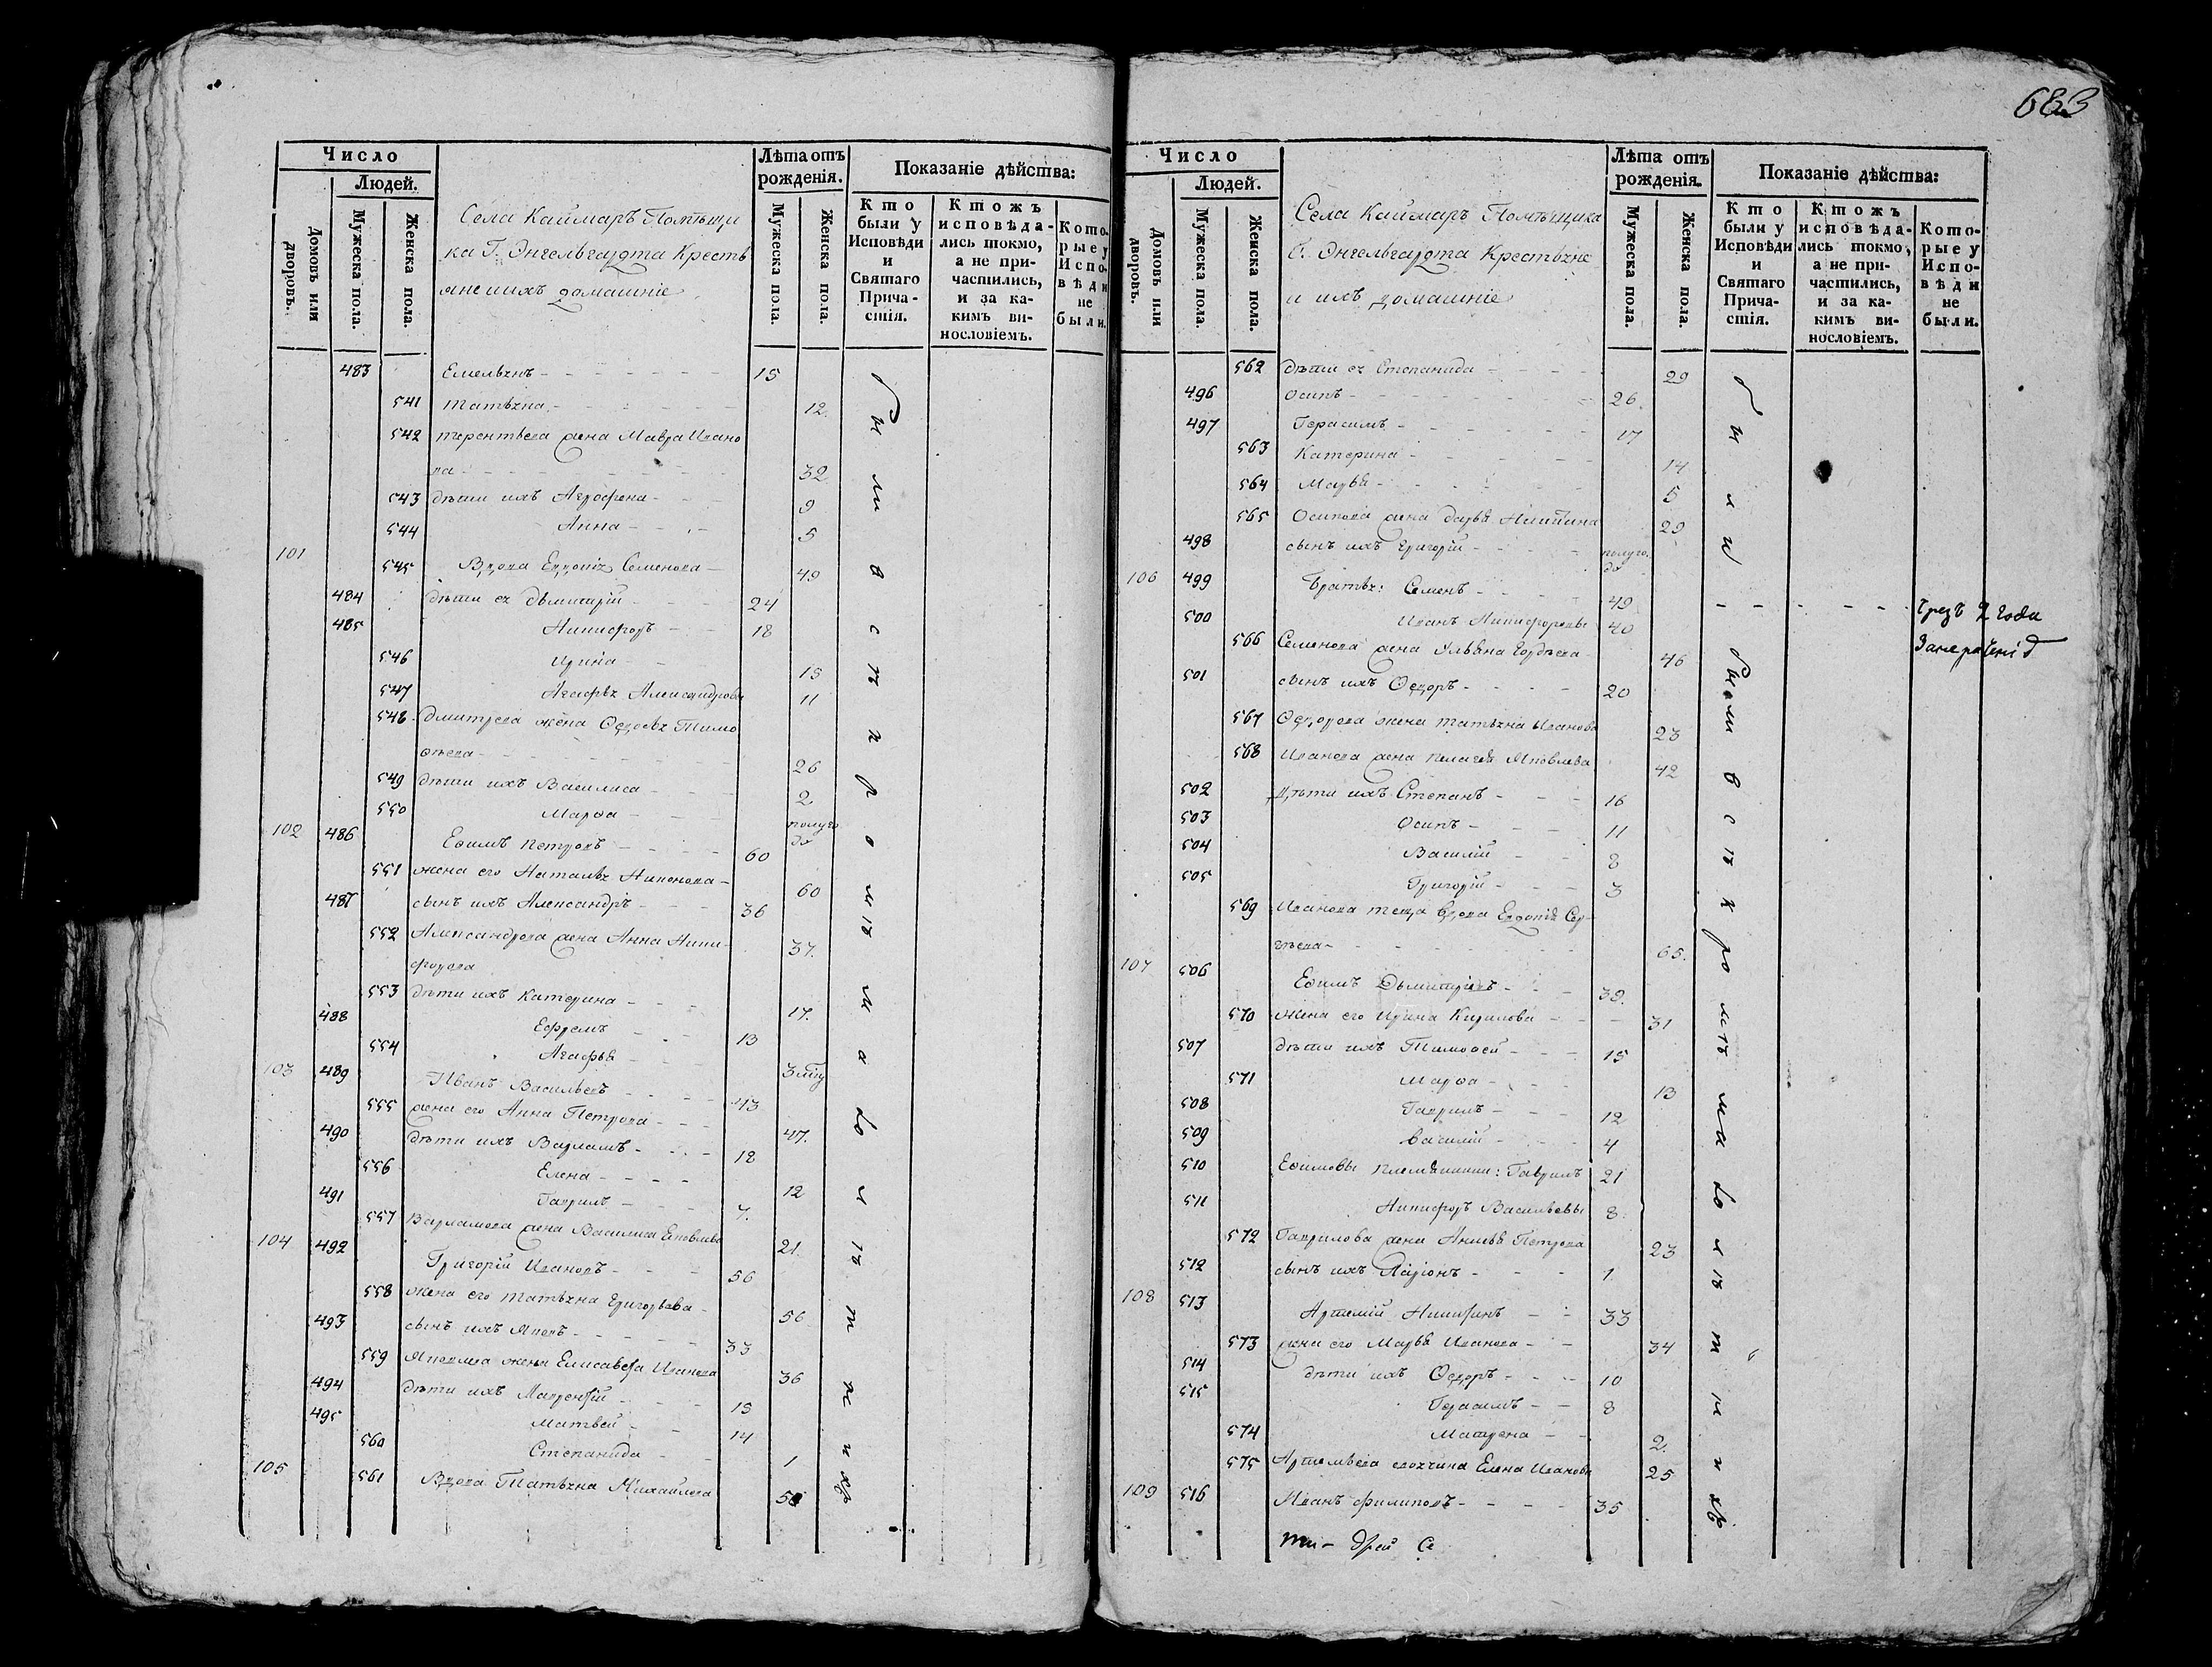 683
Число
Людей.
Домовъ или дворовъ.
Мужеска пола.
Женска пола.
Села Каймаръ Помѣщи
ка Г. Энгельгардта Кресть
яне и ихъ домашніе
Лѣта отъ рожденія.
Мужеска пола.
Женска пола.
Показаніе дѣйства:
Кто были у Исповѣди и Святаго Причастія.
Ктожъ исповѣдались токмо, а не причастились, и за какимъ винословіемъ.
Которые у Исповѣди не были.
483 Емельянъ 15
541 Татьяна 12
542 Терентьева жена Мавра Ивано
ва 32
543 дѣти ихъ Агрофена 9
544 Анна 5
101 545 Вдова Евдокія Семенова 49
484 дѣти ея Дьмитрій 24
485 Никифоръ 18
546 Ирина 15
547 Агафья Александровы 11
548 Дмитрева жена Федосья Тимо
ѳеева 26
549 дѣти ихъ Василиса 2
550 Марѳа полуго
да
102 486 Еѳимъ Петровъ 60
551 жена его Наталья Никонова 60
487 сынъ ихъ Александръ 36
552 Александрова жена Анна Ники- 37
форова
553 дѣти ихъ Катерина 17
488 Ефремъ 13
554 Агафья
103 489 Иванъ Васильевъ 43
555 жена его Анна Петрова 47
490 дѣти ихъ Варламъ 18
556 Елена 12
491 Гаврилъ 7
557 Варламова жена Василиса Яковлева 21
104 492 Григорій Ивановъ 56
558 жена его Татьяна Григорьева 56
493 сынъ ихъ Яковъ 33
559 Яковлева жена Елисавета Иванова 36
494 дѣти ихъ Лаврентій 15
495 Матвей 14
560 Степанида 1
105 561 Вдова Татьяна Михайлова
были въ с и к р о м ъ м а л о и ъ
Число
Людей.
Домовъ или дворовъ.
Мужеска пола.
Женска пола.
Села Каймаръ Помѣщика
Г. Энгельгардта Крестьяне
и ихъ домашніе
Лѣта отъ рожденія.
Мужеска пола.
Женска пола.
Показаніе дѣйства:
Кто были у Исповѣди и Святаго Причастія.
Ктожъ исповѣдались токмо, а не причастились, и за какимъ винословіемъ.
Которые у Исповѣди не были.
562 дѣти ея Степанида 29
496 Осипъ 26
497 Герасимъ 17
563 Катерина 14
564 Марья 5
565 Осипова жена Дарья Никитина 29
498 сынъ ихъ Григорій полуго
да
106 499 Братья: Семенъ 49
500 Иванъ Никифоровы 40
Чрезъ 2 года
566 Семенова жена Ульяна Гордѣева 46
501 сынъ ихъ Ѳедоръ 20
567 Ѳедорова жена Татьяна Иванова 23
568 Иванова жена Пелагея Яковлева 42
502 Дѣти ихъ Степанъ 16
503 Осипъ 11
504 Василій 8
505 Григорій 3
569 Иванова теща вдова Евдокія Сер-
гѣева 65
107 506 Еѳимъ Дьмитріевъ 39
570 жена его Ирина Кирилова 31
507 дѣти ихъ Тимоѳей 15
571 Марѳа 13
508 Гаврилъ 12
509 Василій 4
510 Еѳимовы племянники: Гаврилъ 21
511 Никифоръ Васильевы 8
572 Гаврилова жена Анисья Петрова 23
512 сынъ ихъ Ларіонъ 1
108 513 Артемій Никитинъ 33
573 жена его Марья Иванова 34
514 дѣти ихъ Ѳедоръ 10
515 Герасимъ 8
574 Матрена 2
575 Артемьева своячина Елена Иванова 25
109 516 Иванъ Филиповъ 35